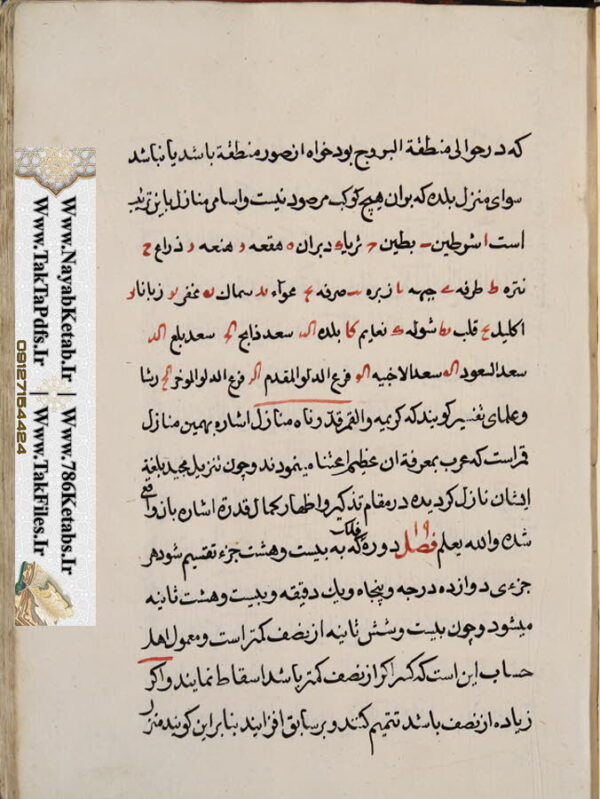 که در حوالی منطقة البروج بود خواه از صور منطقة باشد یا نباشد
سوای منزل بلده که بران هیچ کوکب مرصود نیست و اسامی منازل باین ترتیب
است ا شرطین ب بطین ج ثریا د دبران ه هقعه و هنعه ز ذراع ح
نثره ط طرفه ی جبهه یا زبره یب صرفه یج عواء ید سماک یه غفر یو زبانا یز
اکلیل یح قلب یط شوله ک نعایم کا بلده کب سعد ذابح کج سعد بلع کد
سعد السعود که سعد الاخبیه کو فرغ الدلو المقدم کز فرغ الدلو الموخر کح رشا
و علمای تفسیر کویند که کریمه والقمر قدرناه منازل اشاره بهمین منازل
قمر است که عرب بمعرفة ان عظیم اعتنا مینمودند و چون تنزیل مجید بلغة
ایشان نازل کردیده در مقام تذکیر و اظهار کمال قدرة اشاره بازواقع
شده والله یعلم فصل ۱۹ دوره فلک که به بیست و هشت جزء تقسیم شود هر
جزءی دوازده درجه و پنجاه و یک دقیقه و بیست و هشت ثانیه
میشود و چون بیست و شش ثانیه از نصف کمتر است و معمول اهل
حساب این است که کسر اکر از نصف کمتر باشد اسقاط نمایند و اکر
زیاده از نصف باشد تتمیم کنند و بر سابق افزایند بنابر این کویند منزل
Www.NayabKetab.Ir | Www.786Ketabs.Ir
Www.TakTaPdfs.Ir | Www.TakFiles.Ir
09127154424